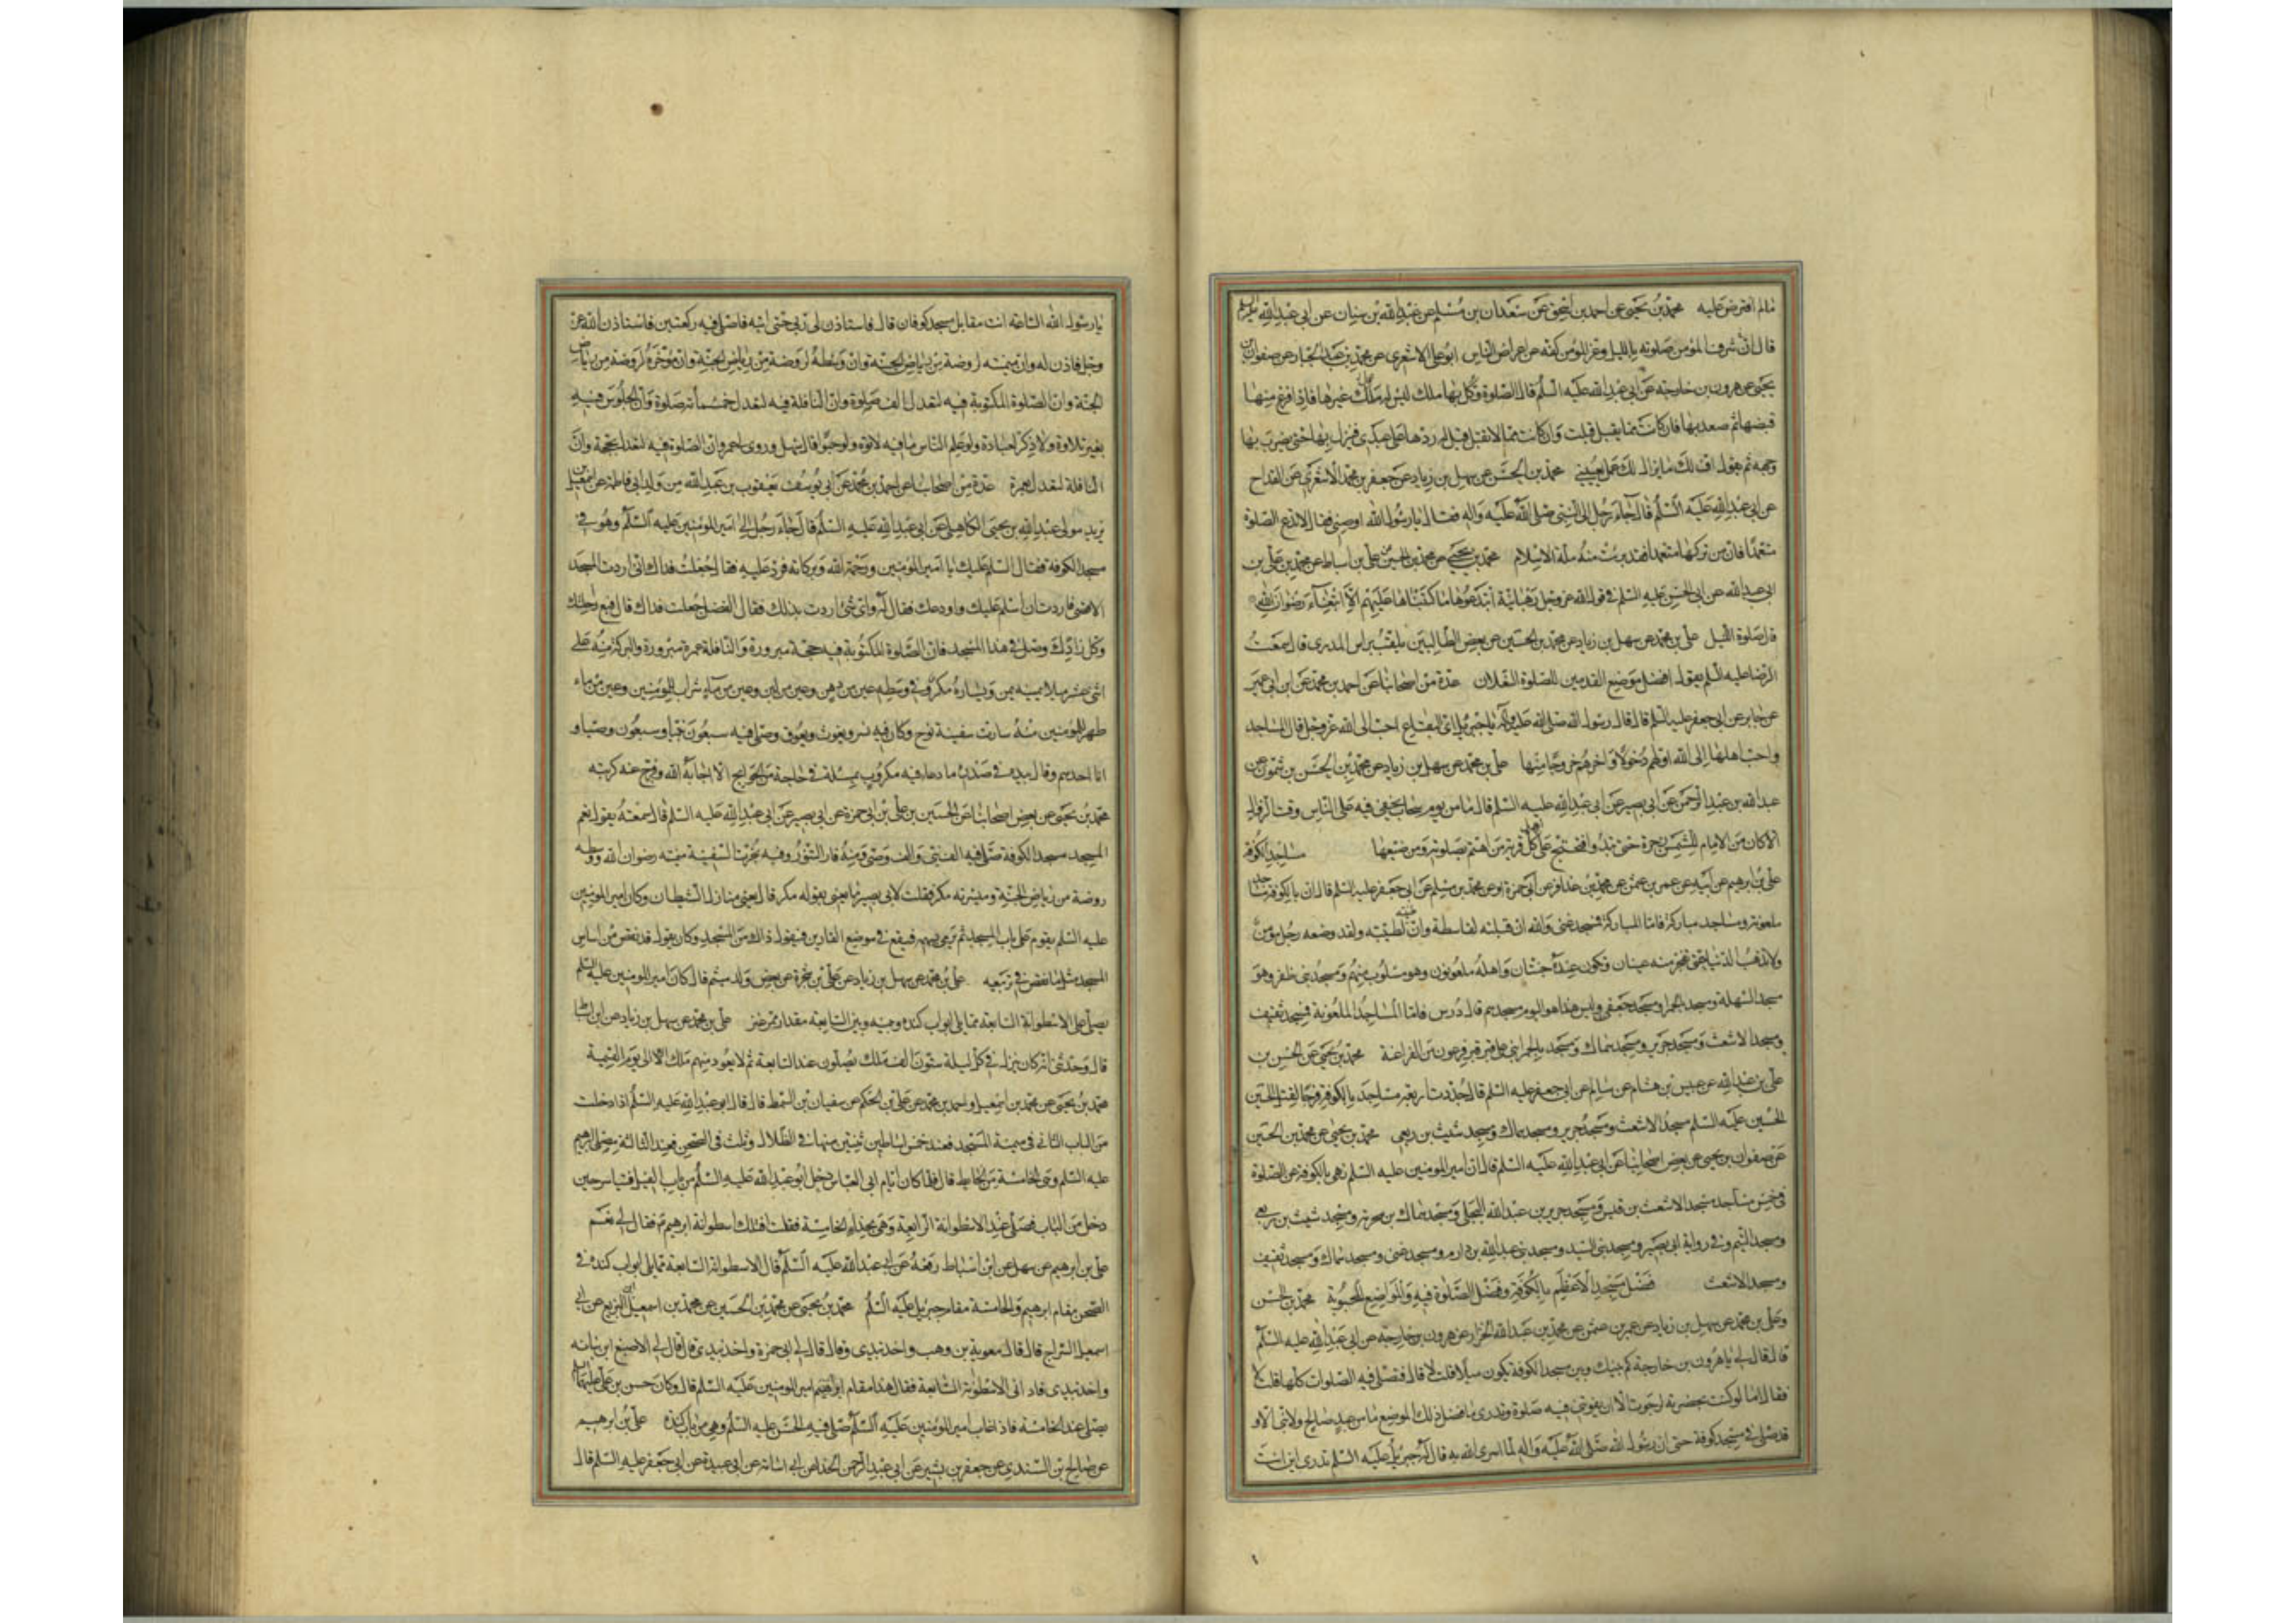 مالم افترض عليه محمد بن يحيى عن احمد بن اسحق عن سعدان بن مسلم عن عبد الله بن سنان عن ابى عبد الله عليه السلم
قال ان شرف المؤمن صلوته بالليل وعز المؤمن كفه عن اعراض الناس ابو على الاشعرى عن محمد بن عبد الجبار عن صفوان بن
يحيى عن هرون بن خارجة عن ابى عبد الله عليه السلم قال الصلوة وكل بها ملك ليس له عمل غيرها فاذا فرغ منها
قبضها ثم صعد بها فان كانت مما يقبل قبلت وان كانت مما لا تقبل قيل له ردها على عبدى فينزل بها حتى يضرب بها
وجهه ثم يقول اف لك ما يزال لك عمل يعنينى محمد بن الحسن عن سهل بن زياد عن جعفر بن محمد الاشعرى عن القداح
عن ابى عبد الله عليه السلم قال جاء رجل الى النبى صلى الله عليه واله فقال يا رسول الله اوصنى فقال لا تدع الصلوة
متعمدا فان من تركها متعمدا فقد برئت منه ملة الاسلام محمد بن يحيى عن محمد بن الحسين عن على بن اسباط عن محمد بن على بن
ابى عبد الله عن ابى الحسن عليه السلم فى قول الله عز وجل رهبانية ابتدعوها ما كتبناها عليهم الا ابتغاء رضوان الله
قال صلوة الليل على بن محمد عن سهل بن زياد عن محمد بن الحسين عن بعض الطالبيين يلقب براس المدرى قال سمعت
الرضا عليه السلم يقول افضل موضع القدمين للصلوة النعلان عدة من اصحابنا عن احمد بن محمد عن ابن ابى عمير
عن جابر عن ابى جعفر عليه السلم قال قال رسول الله صلى الله عليه وآله يا جبرئيل اى البقاع احب الى الله عز وجل قال المساجد
واحب اهلها الى الله اولهم دخولا واخرهم خروجا منها على بن محمد عن سهل بن زياد عن محمد بن الحسن بن شمون عن
عبد الله بن عبد الرحمن عن ابى بصير عن ابى عبد الله عليه السلم قال ما من يوم سحاب يخفى فيه على الناس وقت الزوال
الا كان من الامام للشمس زجرة حتى تبدو فتحتج على اهل كل قرية من اهتم بصلوته ومن ضيعها مساجد الكوفة
على بن ابرهيم عن ابيه عن عمر بن عثمن عن محمد بن عذافر عن ابى حمزة او عن محمد بن مسلم عن ابى جعفر عليه السلم قال ان بالكوفة مساجد
ملعونة ومساجد مباركة فاما المباركة فمسجد غنى والله ان قبلته لقاسطة وان طينته لطيبة ولقد وضعه رجل مؤمن
ولا تذهب الدنيا حتى تفجر منه عينان وتكون عنده جنتان واهله ملعونون وهو مسلوب منهم ومسجد بنى ظفر وهو
مسجد السهلة ومسجد بالحمرا ومسجد جعفى وليس هذا هو اليوم مسجدهم قال درس فاما المساجد الملعونة فمسجد ثقيف
ومسجد الاشعث ومسجد جرير ومسجد سماك ومسجد بالحمرا بنى على قبر فرعون من الفراعنة محمد بن يحيى عن الحسن بن
على بن عبد الله عن عبيس بن هشام عن سالم عن ابى جعفر عليه السلم قال جددت اربعة مساجد بالكوفة فرحا لقتل الحسين
الحسين عليه السلم مسجد الاشعث ومسجد جرير ومسجد سماك ومسجد شبث بن ربعى محمد بن يحيى عن محمد بن الحسين
عن صفوان بن يحيى عن بعض اصحابنا عن ابى عبد الله عليه السلم قال ان امير المؤمنين عليه السلم نهى بالكوفة عن الصلوة
فى خمس مساجد مسجد الاشعث بن قيس ومسجد جرير بن عبد الله البجلى ومسجد سماك بن مخرمة ومسجد شبث بن ربعى
ومسجد التيم وفى رواية ابى بصير ومسجد بنى السيد ومسجد بنى عبد الله بن دارم ومسجد غنى ومسجد سماك ومسجد ثقيف
ومسجد الاشعث فضل مسجد الاعظم بالكوفة وفضل الصلوة فيه والمواضع المحبوبة محمد بن الحسن
وعلى بن محمد عن سهل بن زياد عن عمر بن عثمن عن محمد بن عبد الله الخزاز عن هرون بن خارجة عن ابى عبد الله عليه السلم
قال قال لى يا هرون بن خارجة كم بينك وبين مسجد الكوفة يكون ميلا قلت لا قال فتصلى فيه الصلوات كلها قلت لا
فقال اما لو كنت بحضرته لرجوت الا ان يفوتنى فيه صلوة وتدرى ما فضل ذلك الموضع ما من عبد صالح ولا نبى الا و
قد صلى فى مسجد كوفة حتى ان رسول الله صلى الله عليه واله لما اسرى الله به قال له جبرئيل عليه السلم تدرى اين انت
يا رسول الله الساعة انت مقابل مسجد كوفان قال فاستاذن لى ربى حتى اتيه فاصلى فيه ركعتين فاستاذن الله عز
وجل فاذن له وان ميمنته لروضة من رياض الجنة وان وسطه لروضة من رياض الجنة وان مؤخره لروضة من رياض
الجنة وان الصلوة المكتوبة فيه لتعدل الف صلوة وان النافلة فيه لتعدل خمسمأئة صلوة وان الجلوس فيه
بغير تلاوة ولا ذكر لعبادة ولو علم الناس ما فيه لاتوه ولو حبوا قال سهل وروى لى عمرو ان الصلوة فيه لتعدل بحجة وان
النافلة لتعدل بعمرة عدة من اصحابنا عن احمد بن محمد عن ابى يوسف يعقوب بن عبد الله من ولد ابى فاطمة عن اسمعيل بن
يزيد مولى عبد الله بن يحيى الكاهلى عن ابى عبد الله عليه السلم قال جاء رجل الى امير المؤمنين عليه السلم وهو فى
مسجد الكوفة فقال السلم عليك يا امير المؤمنين ورحمة الله وبركاته فرد عليه فقال جعلت فداك انى اردت المسجد
الاقصى فاردت ان اسلم عليك واودعك فقال له واى شئ اردت بذلك فقال الفضل جعلت فداك قال فبع راحلتك
وكل زادك وصل فى هذا المسجد فان الصلوة المكتوبة فيه حجة مبرورة والنافلة عمرة مبرورة والبركة منه على
اثنى عشر ميلا يمينه يمن ويساره مكر وفى وسطه عين من دهن وعين من لبن وعين من ماء شراب للمؤمنين وعين من ماء
طهر للمؤمنين منه سارت سفينة نوح وكان فيه نسر ويغوث ويعوق وصلى فيه سبعون نبيا وسبعون وصيا و
انا احدهم وقال بيده فى صدره ما دعا فيه مكروب بمسئلة فى حاجة من الحوائج الا اجابه الله وفرج عنه كربته
محمد بن يحيى عن بعض اصحابنا عن الحسين بن على بن ابى حمزة عن ابى بصير عن ابى عبد الله عليه السلم قال سمعته يقول نعم
المسجد مسجد الكوفة صلى فيه الف نبى والف وصى ومنه فار التنور وفيه نجرت السفينة ميمنته رضوان الله ووسطه
روضة من رياض الجنة وميسرته مكر فقلت لابى بصير ما يعنى بقوله مكر قال يعنى منازل الشيطان وكان امير المؤمنين
عليه السلم يقوم على باب المسجد ثم يرمى بسهمه فيقع فى موضع التمارين فيقول ذاك من المسجد وكان يقول قد نقص من اساس
المسجد مثل ما نقص فى تربيعه على بن محمد عن سهل بن زياد عن على بن شجرة عن بعض ولد ميثم قال كان امير المؤمنين عليه السلم
يصلى الى الاسطوانة السابعة مما يلى ابواب كندة وبينه وبين السابعة مقدار ممر عنز على بن محمد عن سهل بن زياد عن ابن اسباط
قال وحدثنى انه كان ينزل فى كل ليلة ستون الف ملك يصلون عند السابعة ثم لا يعود منهم ملك الا الى يوم القيمة
محمد بن يحيى عن محمد بن اسمعيل واحمد بن محمد عن على بن الحكم عن سفيان بن السمط قال قال ابو عبد الله عليه السلم اذا دخلت
من الباب الثانى فى ميمنة المسجد فعد خمس اساطين ثنتين منها فى الظلال وثلث فى الصحن فعند الثالثة مصلى ابرهيم
عليه السلم وهى الخامسة من الحايط قال فلما كان ايام ابى العباس دخل ابو عبد الله عليه السلم من باب الفيل فتياسر حين
دخل من الباب فصلى عند الاسطوانة الرابعة وهى بحذاء الخامسة فقلت افتلك اسطوانة ابرهيم فقال لى نعم
على بن ابرهيم عن سهل عن ابن اسباط رفعه عن ابى عبد الله عليه السلم قال الاسطوانة السابعة مما يلى ابواب كندة فى
الصحن مقام ابرهيم والخامسة مقام جبرئيل عليه السلم محمد بن يحيى عن محمد بن الحسين عن محمد بن اسمعيل بن بزيع عن ابى
اسمعيل السراج قال قال معوية بن وهب واخذ بيدى وقال قال لى ابو حمزة واخذ بيدى قال قال لى الاصبغ ابن نباتة
واخذ بيدى فارانى الاسطوانة السابعة فقال هذا مقام امير المؤمنين عليه السلم قال وكان حسن بن على عليهما السلم
يصلى عند الخامسة فاذا غاب امير المؤمنين عليه السلم صلى فيها الحسن عليه السلم وهى من باب كندة على بن ابرهيم
عن صالح بن السندى عن جعفر بن بشير عن ابى عبد الرحمن الحذاء عن ابى اسامة عن ابى عبيدة عن ابى جعفر عليه السلم قال